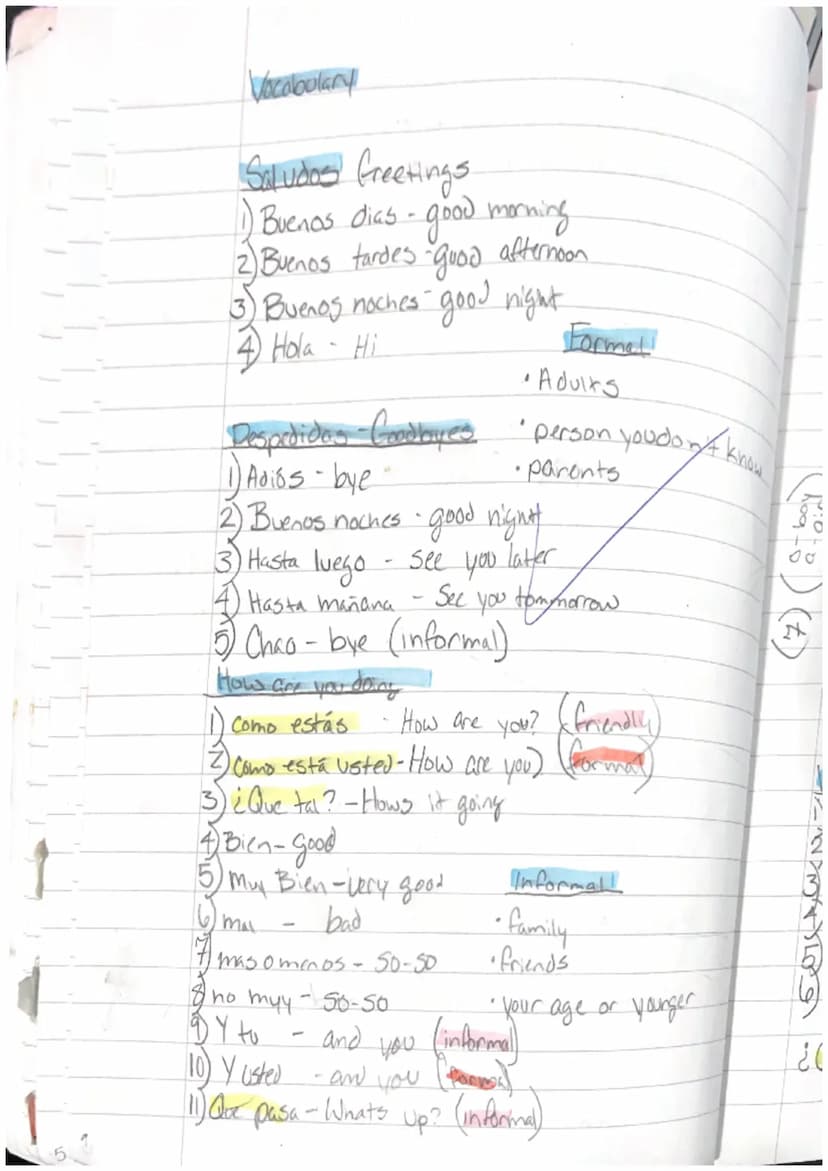 Vocabulary
Saludos Greetings
1) Buenos dias - good morning
2) Buenos tardes - good afternoon
3) Buenos noches - good night
4) Hola - Hi
Formal
• Adults
• person you don't know
• parents
Despedidas - Goodbyes
1) Adiós - bye
2) Buenos noches - good night
3) Hasta luego - see you later
4) Hasta mañana - See you tommorrow
5) Chao - bye (informal)
How are you doing
1) como estás - How are you? (friendly)
2) como está usted - How are you) (formal)
3) ¿Que tal? - Hows it going
4) Bien - good
5) muy Bien - very good
6) mal - bad
7) mas o menos - so-so
8) no muy - so-so
9) Y tu - and you (informal)
10) Y usted - and you (formal)
11) Que pasa - Whats up? (informal)
Informal
• family
• friends
• your age or younger